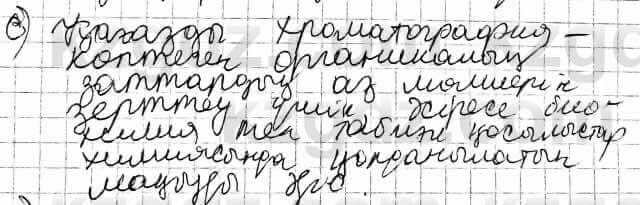 в) Қағазды хроматография -
көптеген органикалық
заттардың аз мөлшерін
зерттеу үшін әсіресе био-
химия мен табиғи қосылыстар
химиясында қолданылатын
маңызды әдіс.